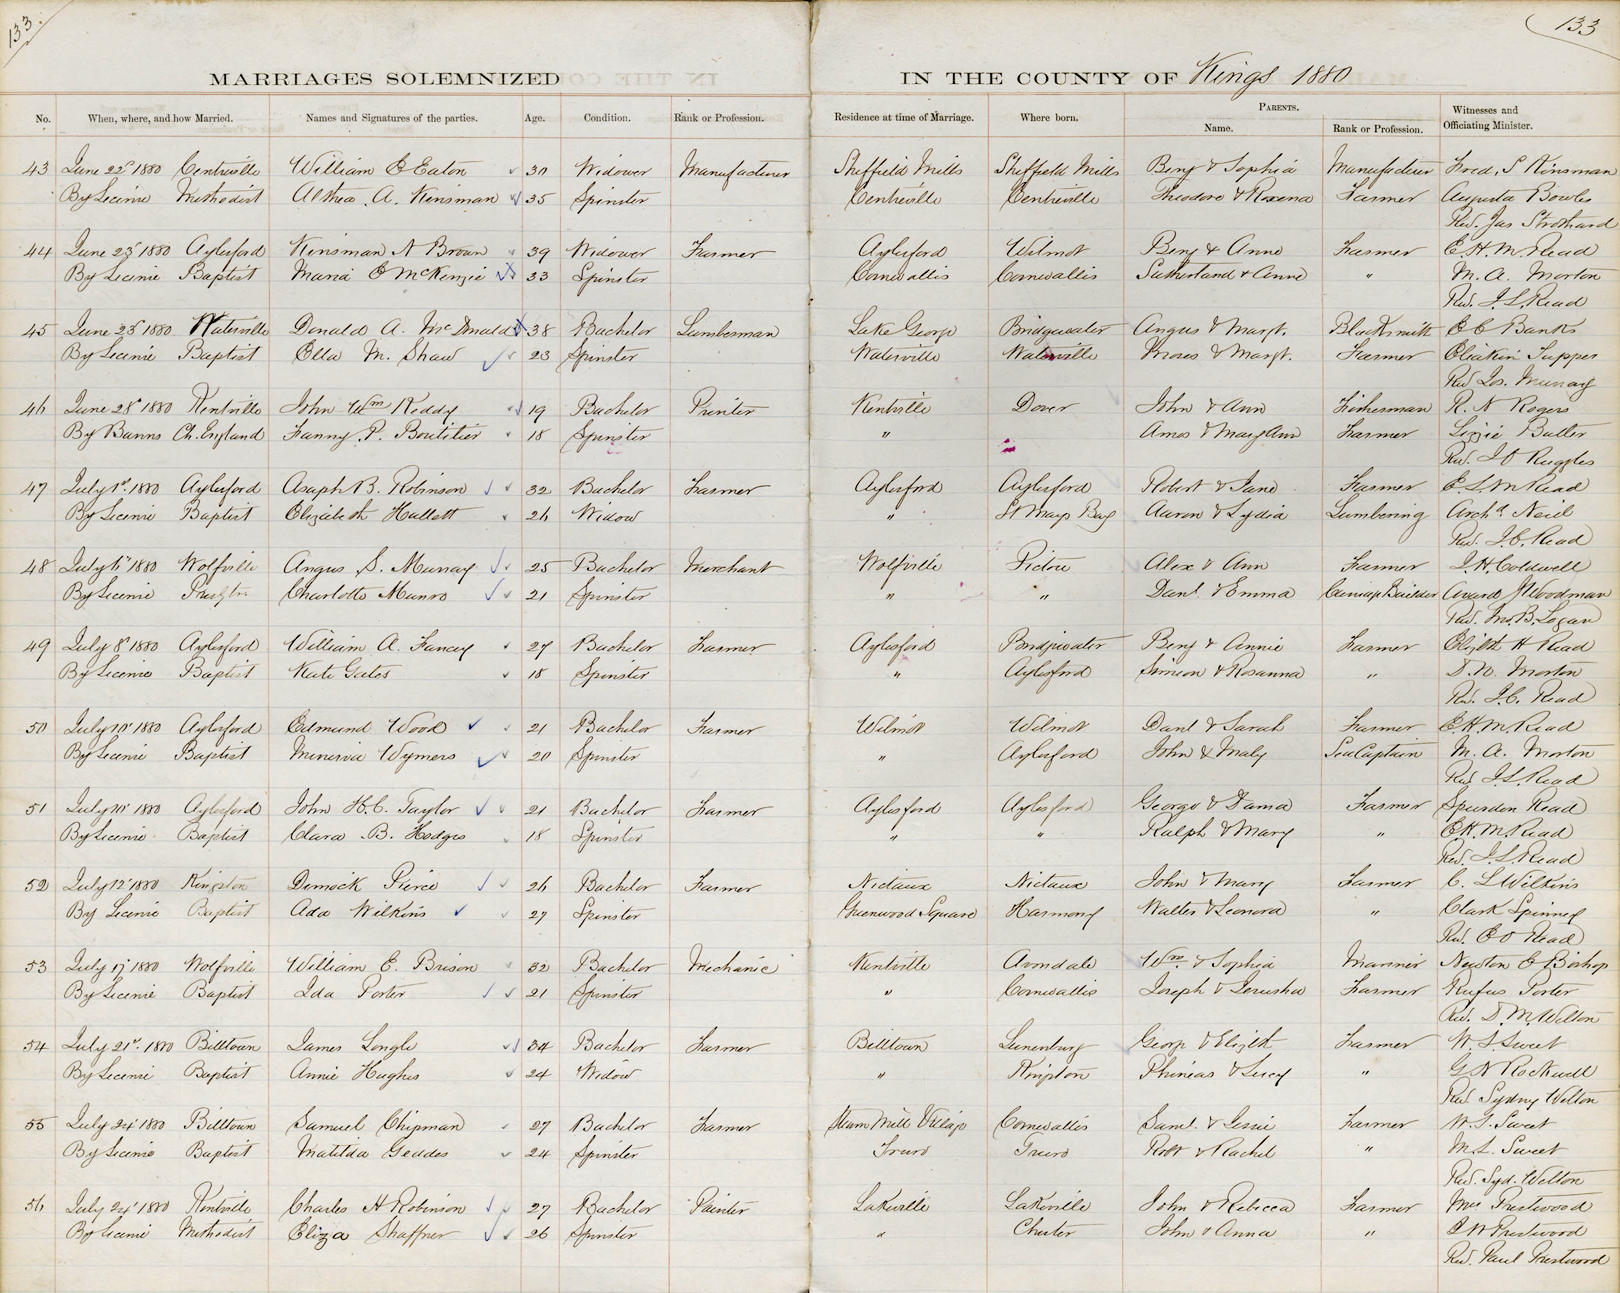 133
133
MARRIAGES SOLEMNIZED IN THE COUNTY OF Kings 1880
No. When, where, and how Married. Names and Signatures of the parties. Age. Condition. Rank or Profession. Residence at time of Marriage. Where born. PARENTS. Name. Rank or Profession. Witnesses and Officiating Minister.
43 June 22d 1880 Centreville William E Eaton 30 Widower Manufacturer Sheffield Mills Sheffield Mills Benj & Sophia Manufacturer Fred. S Kinsman
By Licence Methodist Althea A. Kinsman 35 Spinster Centreville Centreville Theodore & Roxena Farmer Augusta Bowles
Rev. Jas Strothard
44 June 23d 1880 Aylesford Kinsman N Brown 39 Widower Farmer Aylesford Wilmot Benj & Anne Farmer E. H. M. Read
By Licence Baptist Maria E McKenzie 33 Spinster Cornwallis Cornwallis Sutherland & Anne " M. A. Morton
Rev. J. L. Read
45 June 23d 1880 Waterville Donald A. McDonald 38 Bachelor Lumberman Lake George Bridgewater Angus & Margt. Blacksmith E C Banks
By Licence Baptist Ella M. Shaw 23 Spinster Waterville Waterville Moses & Margt. Farmer Eliakim Tupper
Rev Jos. Murray
46 June 28th 1880 Kentville John Wm Reddy 19 Bachelor Printer Kentville Dover John & Ann Fisherman R. N Rogers
By Banns Ch. England Fanny P. Boutilier 18 Spinster " Amos & Mary Ann Farmer Lizzie Butler
Rev. J O Ruggles
47 July 1st 1880 Aylesford Asaph B. Robinson 32 Bachelor Farmer Aylesford Aylesford Robert & Jane Farmer E. L. M Read
By Licence Baptist Elizabeth Hallett 26 Widow " St Marys Bay Aaron & Lydia Lumbering Archd. Neil
Rev. J. C. Read
48 July 6th 1880 Wolfville Angus S. Murray 25 Bachelor Merchant Wolfville Pictou Alex & Ann Farmer J. H. Coldwell
By Licence Presbytn. Charlotte Munro 21 Spinster " " Danl & Emma Carriage Builder Avard Woodman
Rev. M. B. Logan
49 July 8th 1880 Aylesford William A. Fancy 27 Bachelor Farmer Aylesford Bridgewater Benj & Annie Farmer Elizth H Read
By Licence Baptist Kate Gates 18 Spinster " Aylesford Simeon & Rosanna " Morton
Rev. J. C. Read
50 July 10th 1880 Aylesford Edmund Wood 21 Bachelor Farmer Wilmot Wilmot Danl & Sarah Farmer E. H. M. Read
By Licence Baptist Minervia Wymers 20 Spinster " Aylesford John & Mary Sea Captain M. A. Morton
Rev. J. L. Read
51 July 10th 1880 Aylesford John H. C. Taylor 21 Bachelor Farmer Aylesford Aylesford George & Farmer Spurdon Read
By Licence Baptist Clara B. Hodges 18 Spinster " " Ralph & Mary " E. H. M. Read
Rev. J. L. Read
52 July 12th 1880 Kingston Dimock Pierce 26 Bachelor Farmer Nictaux Nictaux John & Mary Farmer C. L Wilkins
By Licence Baptist Ada Wilkins 27 Spinster Greenwood Square Harmony Walter & Leonora " Clark Spinney
Rev. E O Read
53 July 17 1880 Wolfville William E. Brison 32 Bachelor Mechanic Kentville Avondale Wm. & Sophia Mariner Newton E Bishop
By Licence Baptist Ida Porter 21 Spinster " Cornwallis Joseph & Jerusha Farmer Rufus Porter
Rev. D. M. Welton
54 July 21st 1880 Billtown James Longle 34 Bachelor Farmer Billtown Lunenburg George & Elizth Farmer W. S. Sweet
By Licence Baptist Annie Hughes 24 Widow " Kingston Phineas & Lucy " G N Rockwell
Rev. Sydney Welton
55 July 24th 1880 Billtown Samuel Chipman 27 Bachelor Farmer Steam Mill Village Cornwallis Saml. & Jessie Farmer W. S. Sweet
By Licence Baptist Matilda Geddes 24 Spinster Truro Truro Robt & Rachel " M. L. Sweet
Rev. Syd. Welton
56 July 24th 1880 Kentville Charles H Robinson 27 Bachelor Painter Lakeville Lakeville John & Rebecca Farmer Mrs Prestwood
By Licence Methodist Eliza Shaffner 26 Spinster " Chester John & Anna " Prestwood
Rev. Paul Prestwood